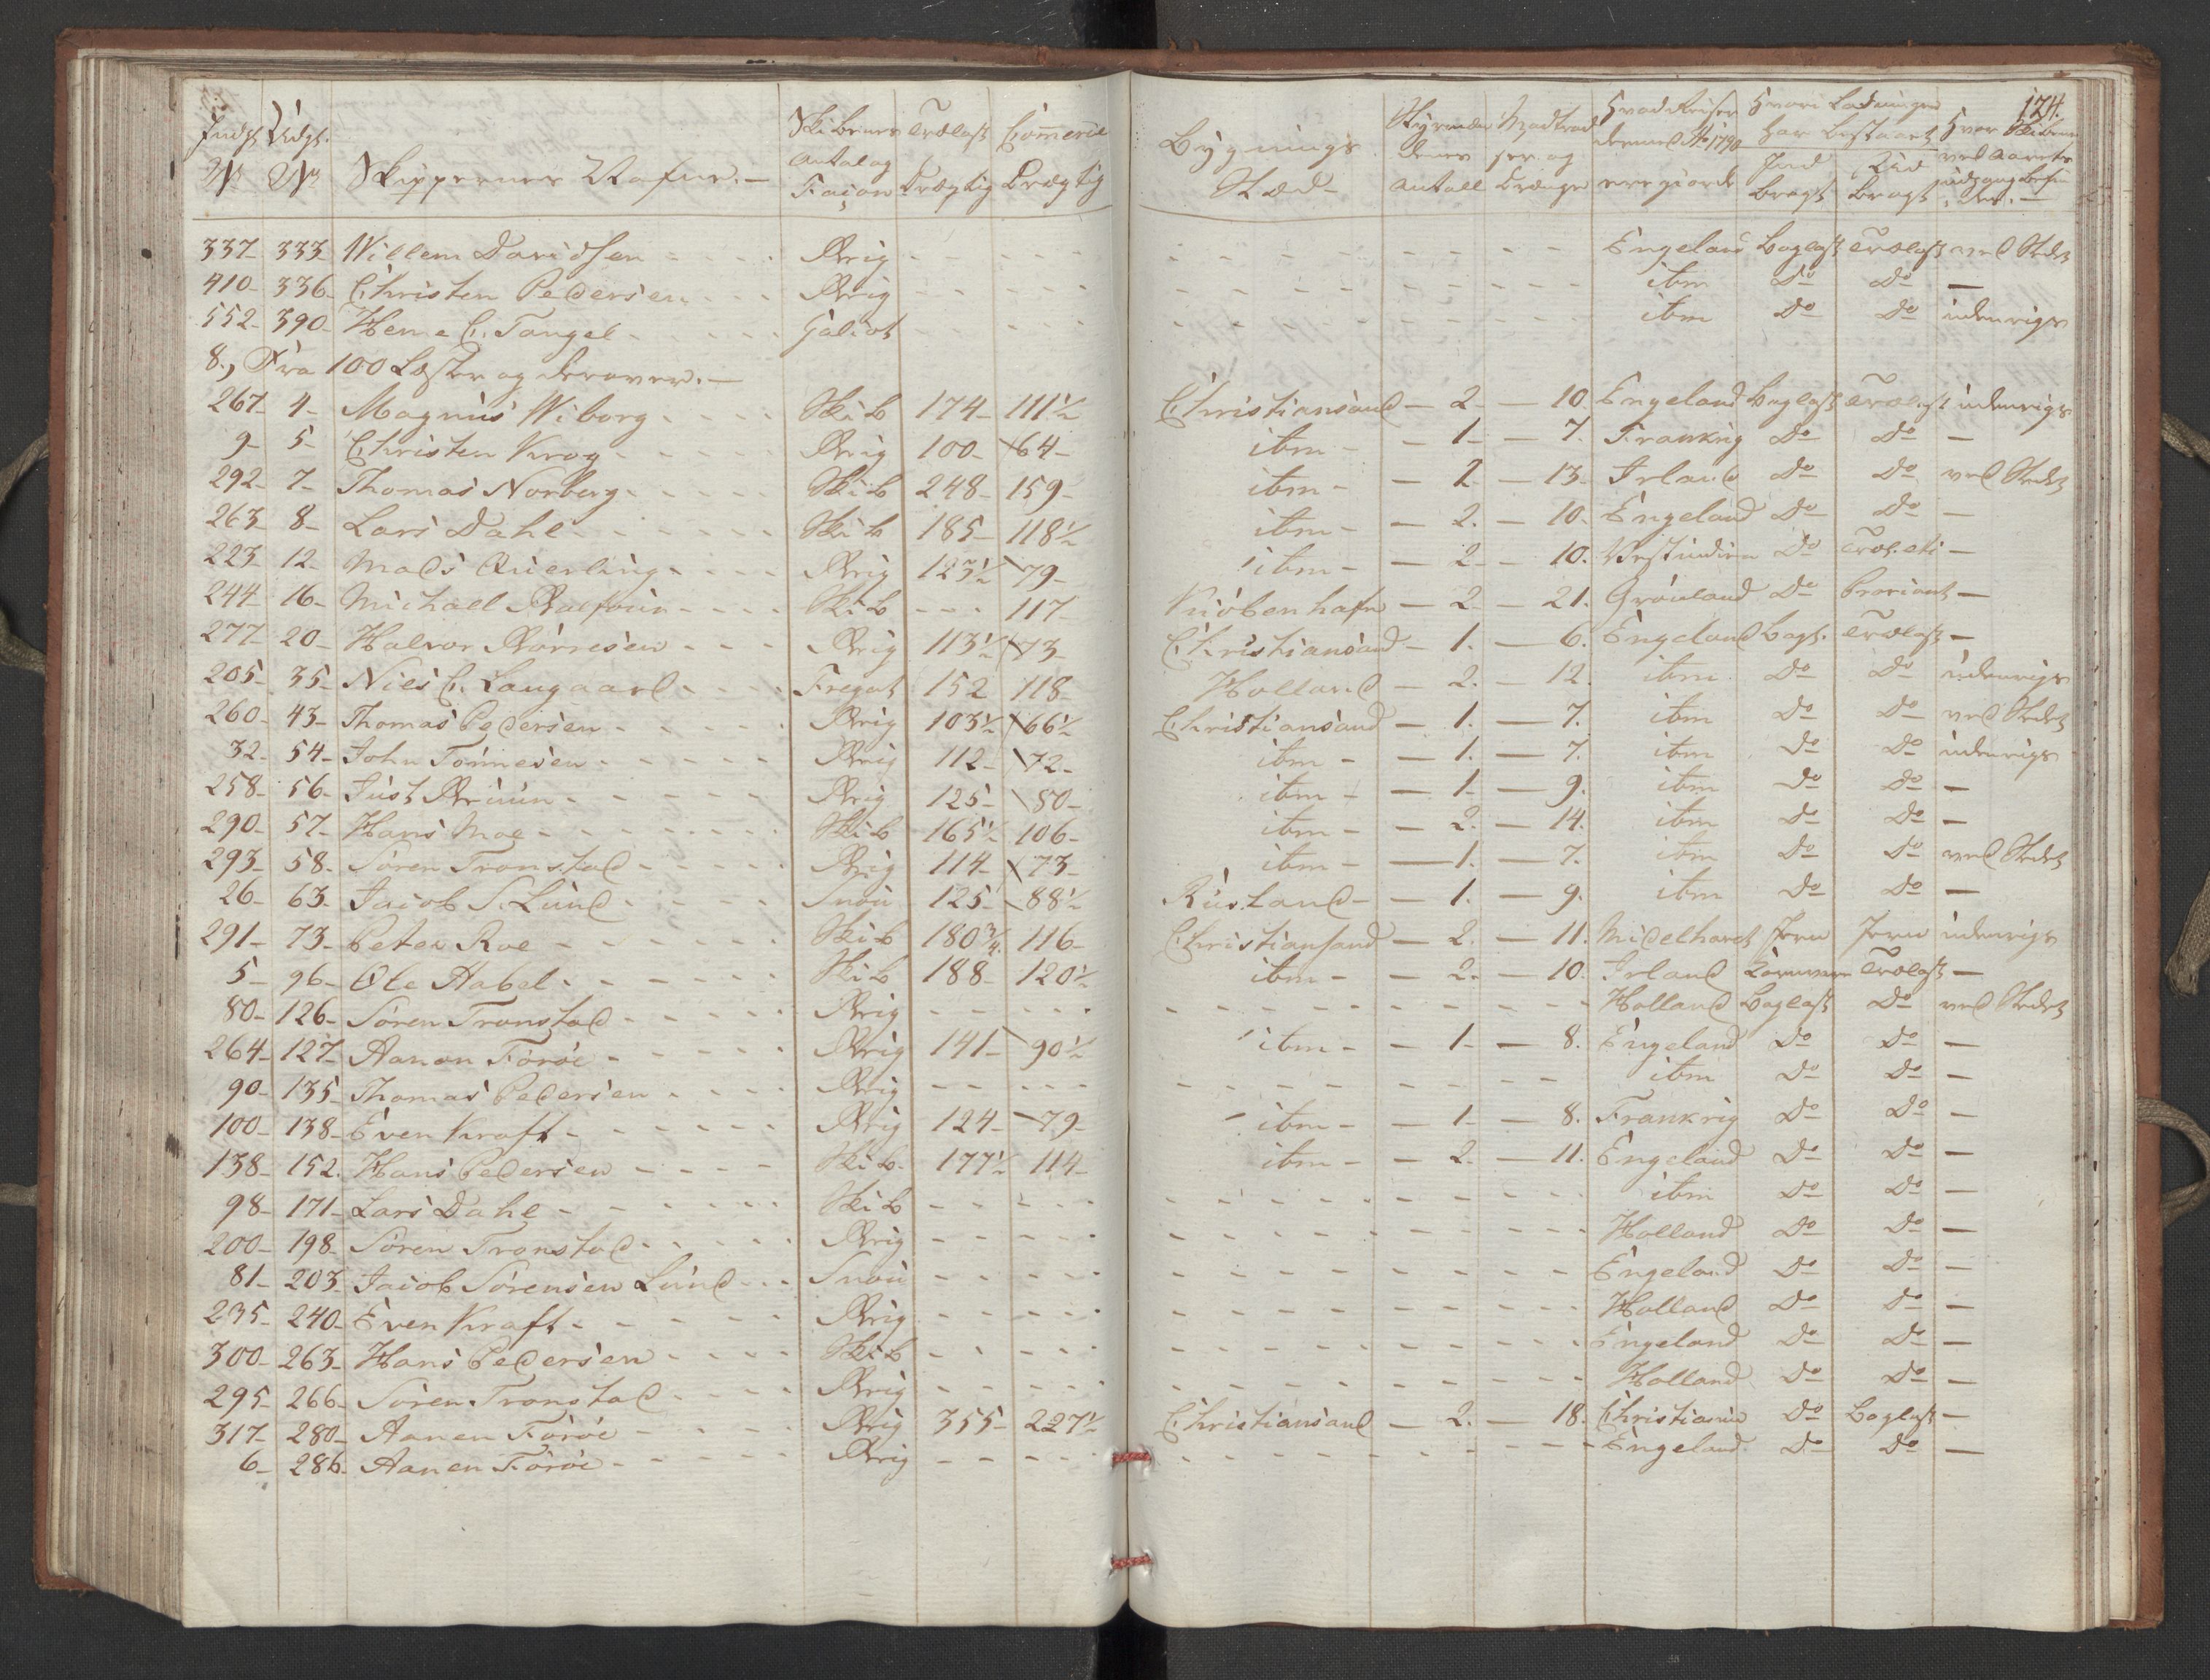 174.
Indgt. Udgt. Skibenes Trælast Commerce Bygnings Styrmæn Madtrod Hvad Reiser Hvori Ladningen Hvor Skibene
No No Skippernes Nafne. — Antal og Facon Drægtig Drægtig Stæd — denes Antall ser og Drænge dermed Ao 1790 ere giorde har bestaaet Ind bragt Ud bragt ved Aarets udgang befindes. —
337- 333- Willem Davidsen - - - - Brig - - - - - - Engeland Baglast Trælast ved Stedet
410- 336- Christen Pedersen - - - Brig - - - - - - itm Do Do —
552- 390- Heme C. Tangel - - - - Galiot - - - - - - itm Do Do udenrigs
8., Fra 100 Læster og derover. —
267- 4- Magnus Wiborg - - - - Skib 174- 111½ Christiansand - 2. - 10. Engeland Baglast Trælast udenrigs
9- 5- Christen Krog - - - - Brig 100- 64- itm - - 1- - 7. Frankrig Do Do —
292- 7- Thomas Norberg - - - - Skib 248- 159- itm - - 2- - 13- Irland Do Do ved Stedet
263- 8- Lars Dahl - - - - Skib 185- 118½ itm - - 2. - 10. Engeland Do Do —
223- 12- Mads Qvierling - - - - Brig 123½ 79- itm - - 2- - 10. Vestindien Do —
244- 16- Michael - - - - Skib - - - 117- Kiøbenhafn - 2- - 21. Grønland Do Proviant —
277- 20- Halvor Børresen - - - Brig 113½ 73- Christiansand - 1. - 6. Engeland Bagl. Trælast —
205- 35- Niels C. Laugaard - - - - Fregat 152 118- Holland - 2. - 12. itm Do Do udenrigs
260- 43- Thomas Pedersen - - - - Brig 103½ 66½ Christiansand - 1. - 7. itm Do Do ved Stedet
32- 54- John Tønnesen - - - - Brig 112- 72- itm - - 1. - 7. itm Do Do udenrigs
258- 56- Just Bruun - - - - Brig 125- 80- itm - - 1- - 9. itm Do Do —
290- 57- Hans Moe - - - - Skib 165½ 106- itm - - 2. - 14. itm Do Do —
293- 58- Søren Tronstad - - - - Brig 114- 73- itm - - 1. - 7. itm Do Do ved Stedet
26- 63- Jacob S. Lund - - - - Snau 125- 88½ Rusland - - 1. - 9. itm Do Do —
291- 73- Peter Roe - - - - Skib 180¾ 116- Christiansand - 2. - 11. Midelhavet Jern udenrigs
5- 96- Ole Aabel - - - - Skib 188- 120½ itm - - 2. - 10. Irland Trælast —
80- 126- Søren Tronstad - - - - Brig - - - - - - Holland Baglast Do ved Stedet
264- 127- Aanon Førøe - - - - Brig 141- 90½ itm - - 1- - 8. Engeland Do Do —
90- 135- Thomas Pedersen - - - Brig - - - - - - itm Do Do —
100- 138- Even Kraft - - - - Brig 124- 79- itm - - 1- - 8. Frankrig Do Do —
138- 152. Hans Pedersen - - - - Skib- 177½ 114- itm - - 2- - 11. Engeland Do Do —
98- 171- Lars Dahl - - - - Skib - - - - - - itm Do Do —
200- 198- Søren Tronstad - - - - Brig - - - - - - Holland Do Do —
81- 203- Jacob Sørensen Lund - - - Snau - - - - - - Engeland Do Do —
235- 240- Even Kraft - - - - Brig - - - - - - Holland Do Do —
300- 263- Hans Pedersen - - - - Skib - - - - - - Engeland Do Do —
295- 266- Søren Tronstad - - - - Brig - - - - - - Holland Do Do —
317- 280- Aanen Førøe - - - - Brig 355- 227½ Christiansand - 2. - 18. Christiania Do Baglast —
6- 286- Aanen Førøe - - - - Brig - - - - - - Engeland Do Do —